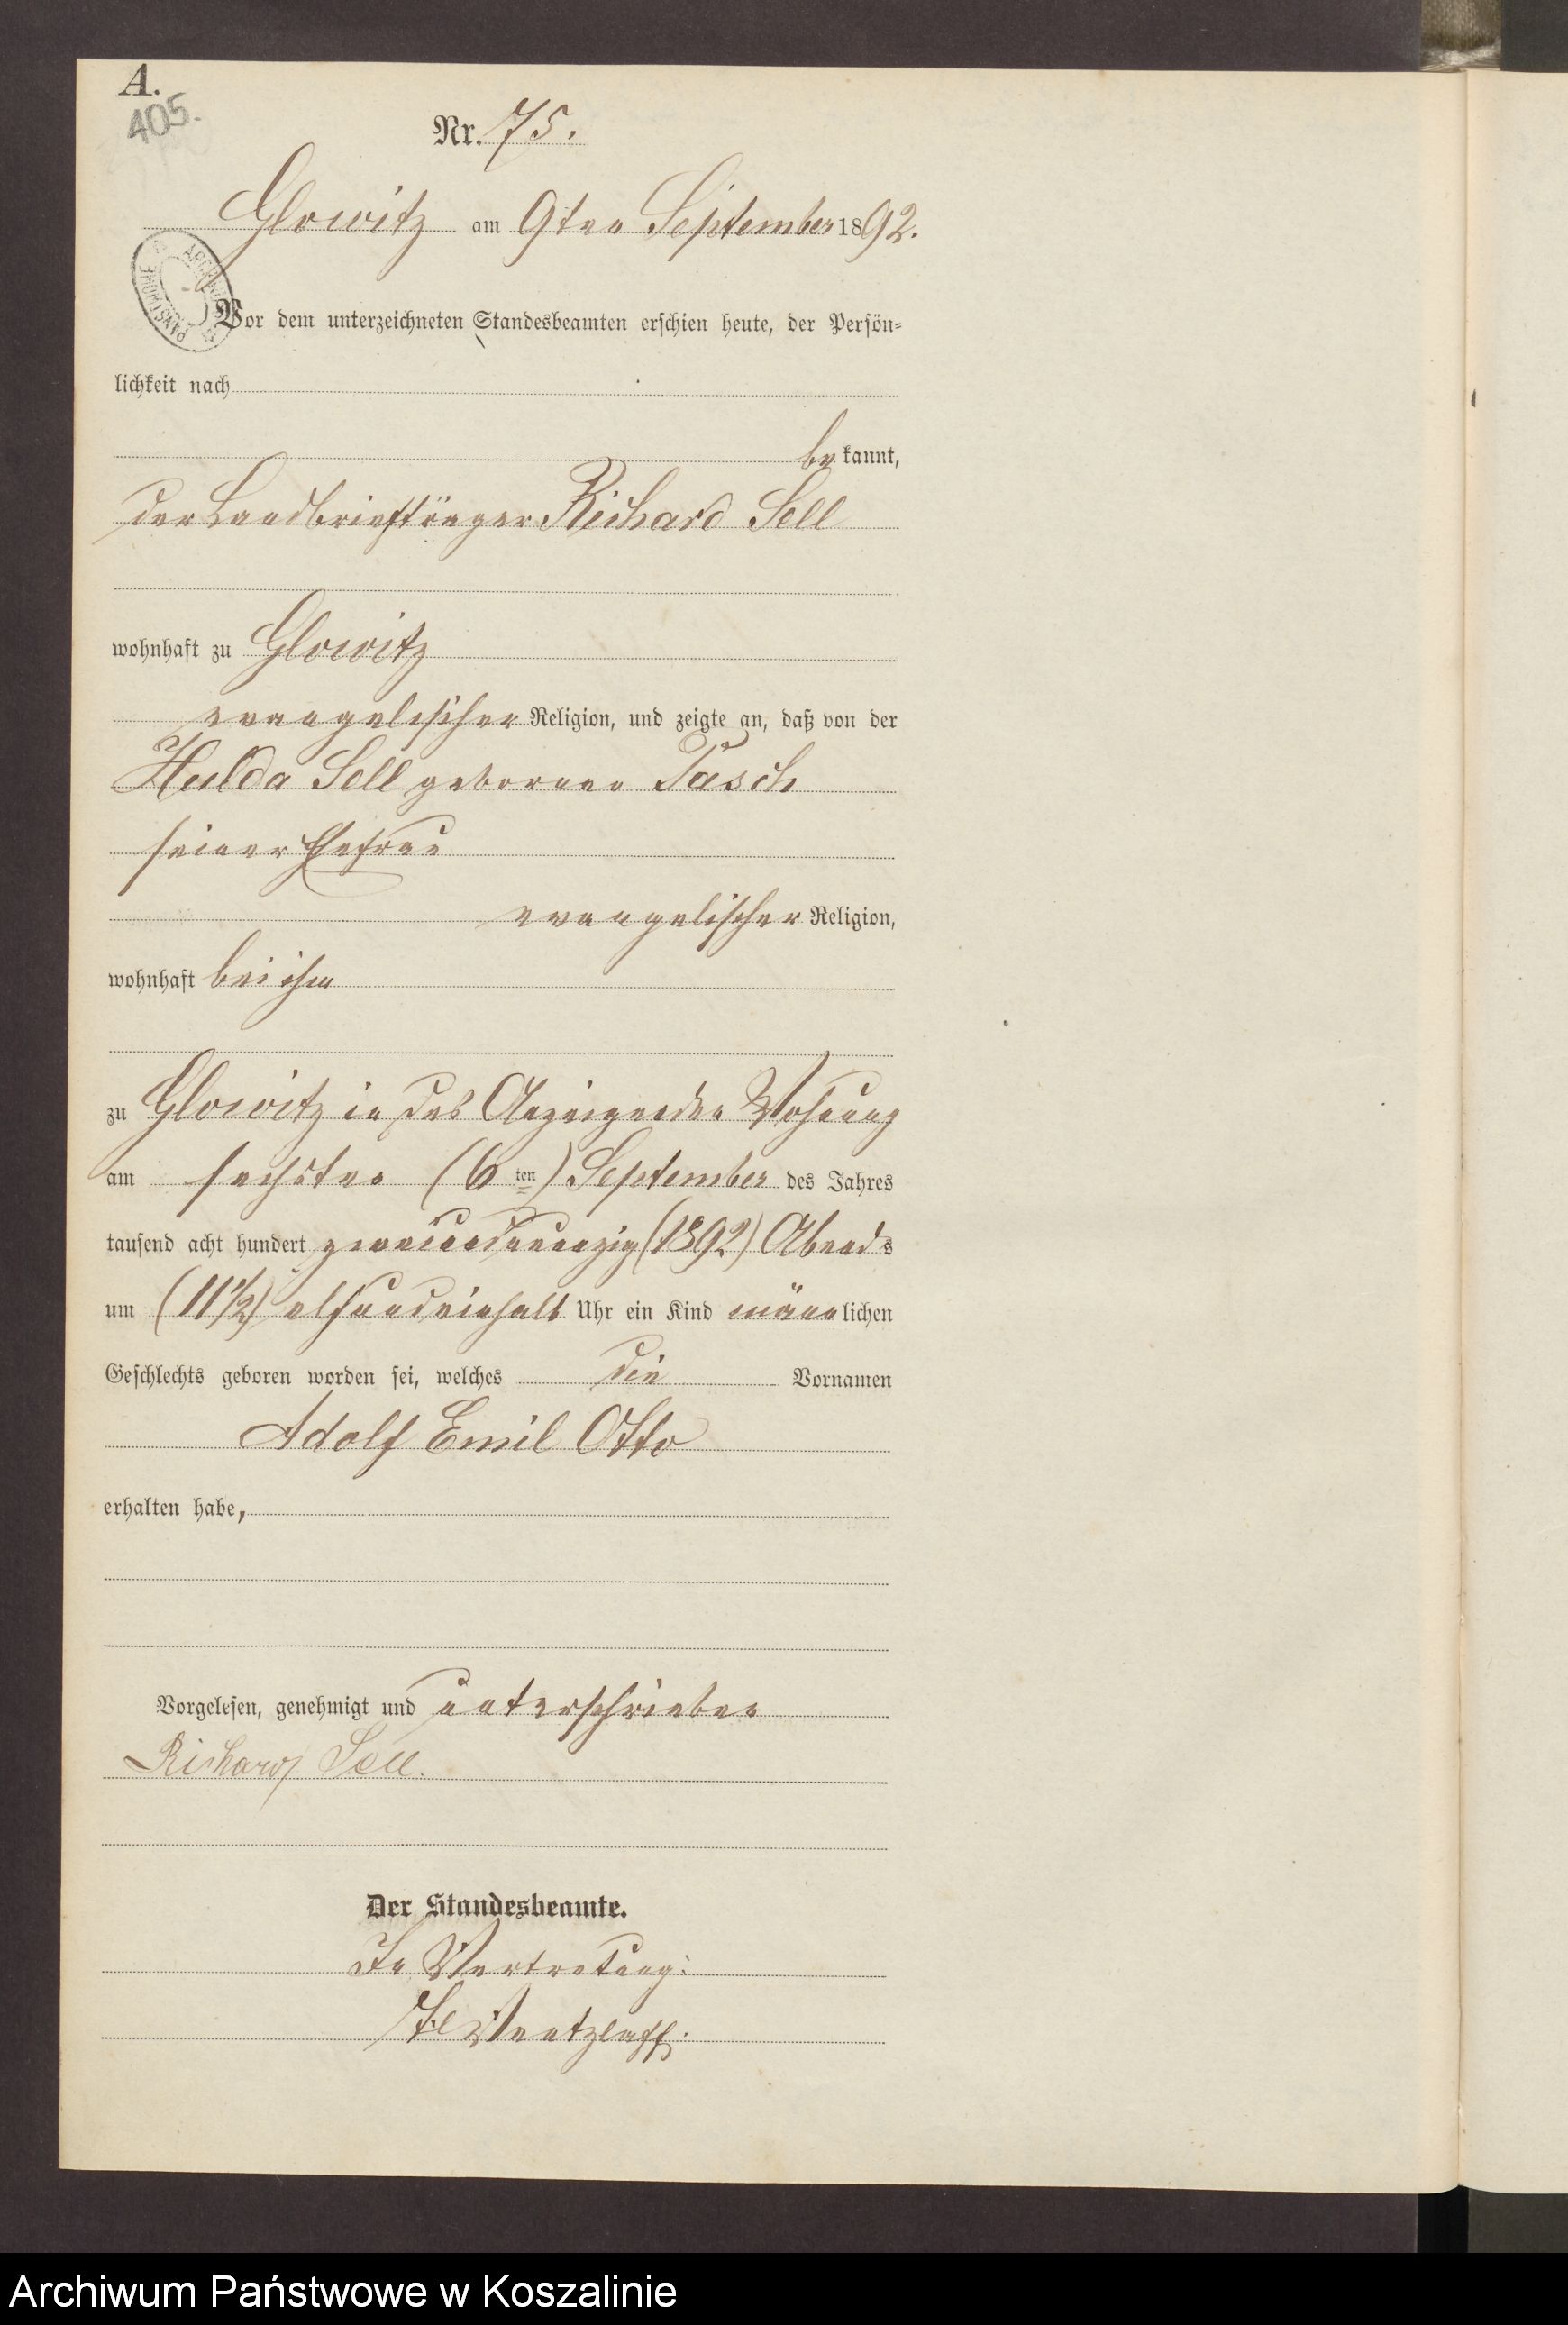 A.
405.
Nr. 75.
Glowitz am 9ten September 1892.
Vor dem unterzeichneten Standesbeamten erschien heute, der Persön-
lichkeit nach
be kannt,
der Landbriefträger Richard Sell
wohnhaft zu Glowitz
evangelischer Religion, und zeigte an, daß von der
Hulda Sell geborenen Tasch
seiner Ehefrau
evangelischer Religion,
wohnhaft bei ihm
zu Glowitz in des Anzeigenden Wohnung
am sechsten (6ten) September des Jahres
tausend acht hundert zweiundneunzig (1892) Abends
um (11½) elfundeinhalb Uhr ein Kind männlichen
Geschlechts geboren worden sei, welches die Vornamen
Adolf Emil Otto
erhalten habe,
Vorgelesen, genehmigt und unterschrieben
Richard Sell.
Der Standesbeamte.
In Vertretung:
Wentzlaff.
Archiwum Państwowe w Koszalinie